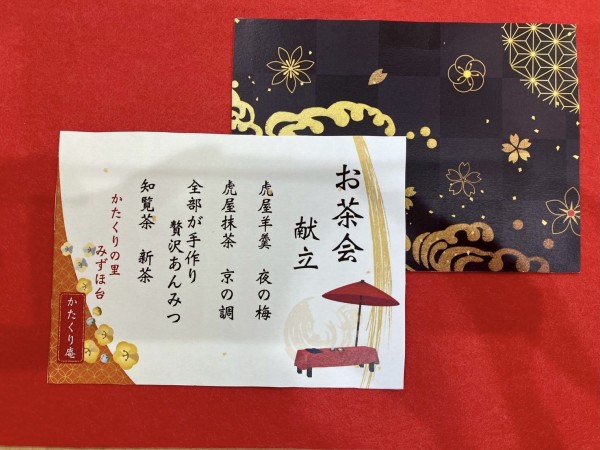 お茶会
献立
虎屋羊羹　夜の梅
虎屋抹茶　京の調
全部が手作り
贅沢あんみつ
知覧茶　新茶
かたくりの里
みずほ台
かたくり庵